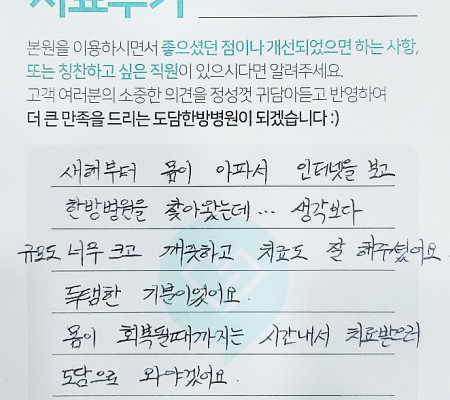 치료후기
본원을 이용하시면서 좋으셨던 점이나 개선되었으면 하는 사항,
또는 칭찬하고 싶은 직원이 있으시다면 알려주세요.
고객 여러분의 소중한 의견을 정성껏 귀담아듣고 반영하여
더 큰 만족을 드리는 도담한방병원이 되겠습니다 :)
새해부터 몸이 아파서 인터넷을 보고
한방병원을 찾아왔는데... 생각보다
규모도 너무 크고 깨끗하고 치료도 잘 해주셨어요
득템한 기분이었어요.
몸이 회복될때까지는 시간내서 치료받으러
도담으로 와야겠어요.